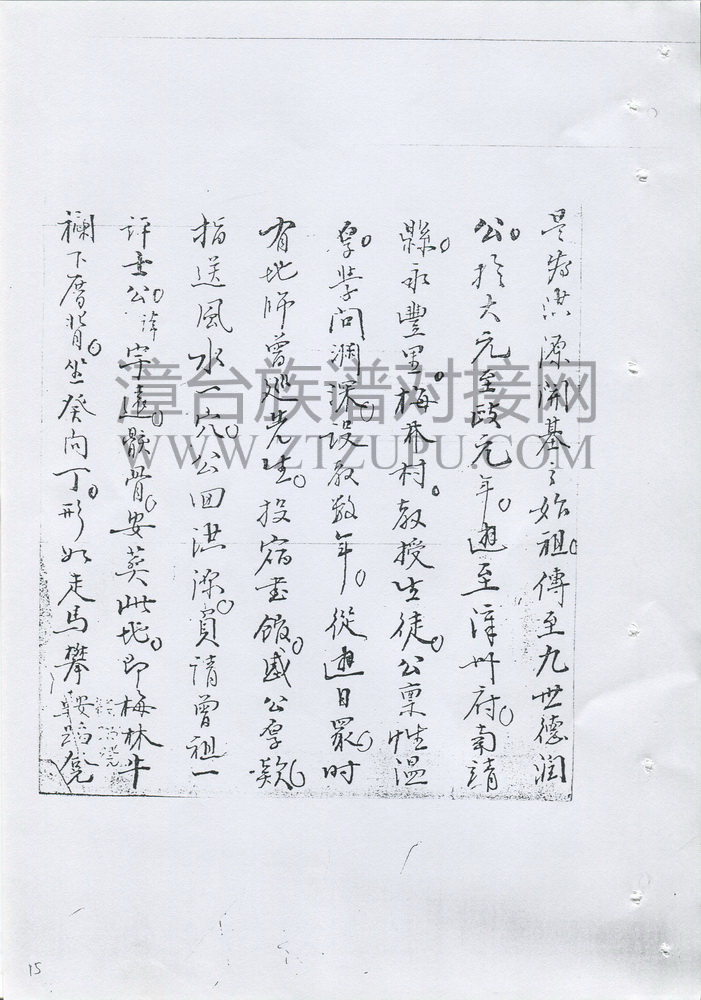 是為洪源開基之始祖。傳至九世德潤
公。於大元至政元年。遊至漳州府。南靖
縣。永豐里。梅林村。教授生徒。公稟性溫
厚。學問淵深。設教数年。從遊日眾。时
有地师曾巡先生。投宿書館。感公厚欵。
指送風水一穴。公回洪源。負請曾祖一
評士公。諱字遠骸骨。安葬此地。即梅林牛
欄下厝背。坐癸向丁。形如走馬攀鞍
漳台族谱对接网
WWW.ZTZUPU.COM
15